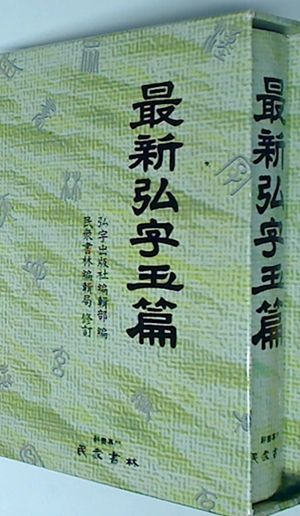 最新弘字玉篇
弘字出版社 編輯部 編
民衆書林 編輯局 修訂
民衆書林
最新弘字玉篇
民衆書林